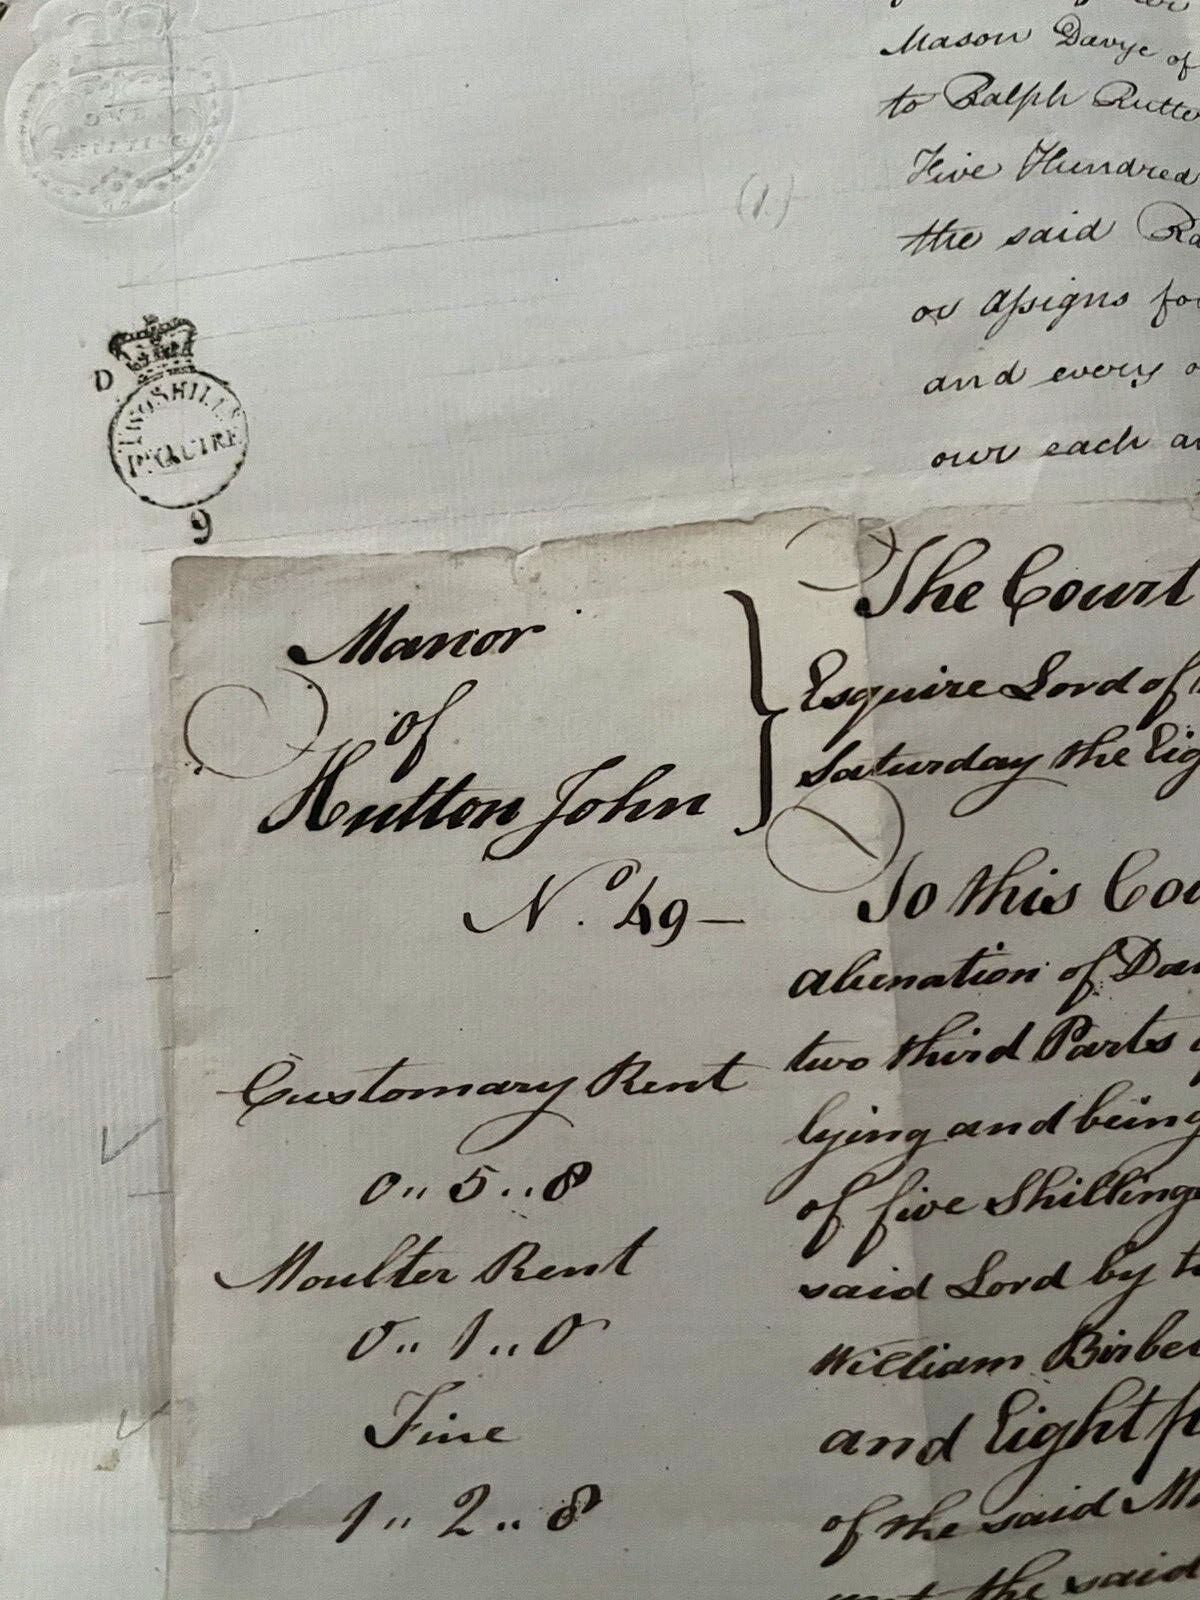 Mason Davye of
to Ralph
Five Hundred
the said
or Assigns for
and every
our each
(1.)
D
TWO SHILLS
PR QUIRE
9
Manor
of
Hutton John
No. 49 —
Customary Rent
0 ,, 5 ,, 8
Moulter Rent
0 ,, 1 ,, 0
Fine
1 ,, 2 ,, 8
The Court
Esquire Lord of
Saturday the
To this
alienation of
two third Parts
lying and being
of five Shillings
said Lord by
William
and Eight
of the said
the said